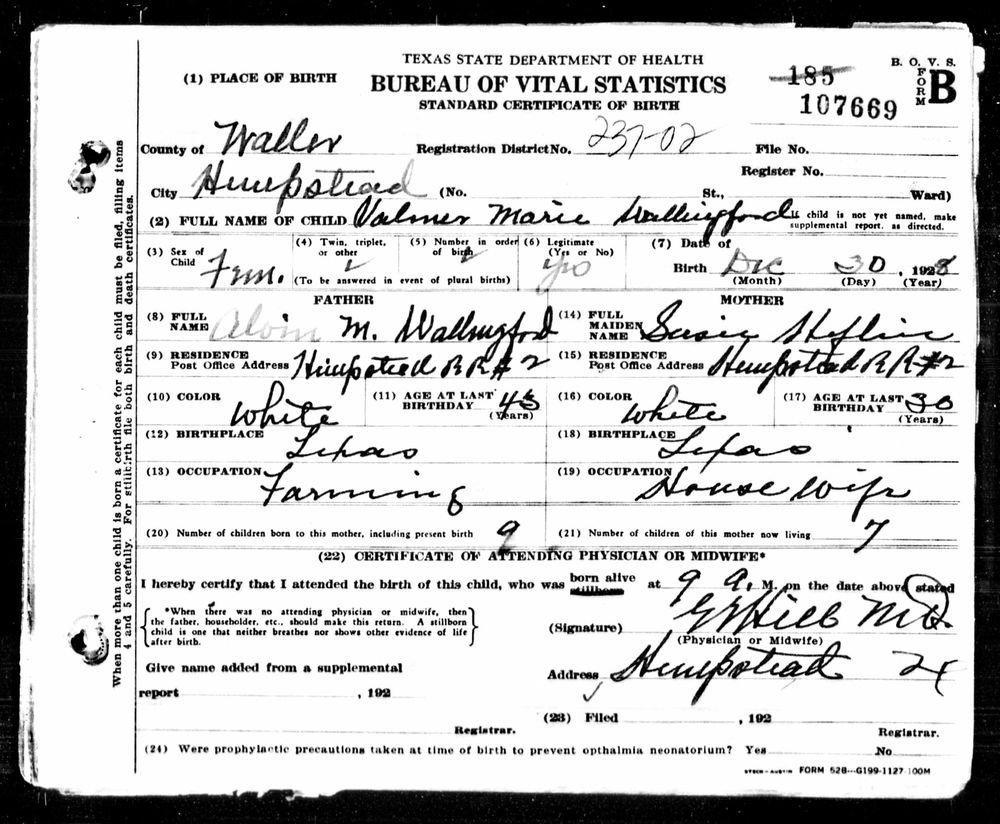 TEXAS STATE DEPARTMENT OF HEALTH
BUREAU OF VITAL STATISTICS
STANDARD CERTIFICATE OF BIRTH
B. O. V. S.
FORM B
185
107669
(1) PLACE OF BIRTH
County of Waller Registration District No. 237-02 File No.
Register No.
City Hempstead (No. St., Ward)
(2) FULL NAME OF CHILD Valmer Marie Wallingford If child is not yet named, make supplemental report, as directed.
(3) Sex of Child Fem. (4) Twin, triplet, or other (5) Number in order of birth (To be answered in event of plural births) (6) Legitimate (Yes or No) yes (7) Date of Birth Dec 30, 1928 (Month) (Day) (Year)
FATHER
MOTHER
(8) FULL NAME Alvin M. Wallingford (14) FULL MAIDEN NAME Susie Heflin
(9) RESIDENCE Post Office Address Hempstead RR #2 (15) RESIDENCE Post Office Address Hempstead RR #2
(10) COLOR White (11) AGE AT LAST BIRTHDAY (Years) (16) COLOR White (17) AGE AT LAST BIRTHDAY 30 (Years)
(12) BIRTHPLACE Texas (18) BIRTHPLACE Texas
(13) OCCUPATION Farming (19) OCCUPATION House wife
(20) Number of children born to this mother, including present birth 9 (21) Number of children of this mother now living 7
(22) CERTIFICATE OF ATTENDING PHYSICIAN OR MIDWIFE*
I hereby certify that I attended the birth of this child, who was born alive stillborn at 9 a. M. on the date above stated
*When there was no attending physician or midwife, then the father, householder, etc., should make this return. A stillborn child is one that neither breathes nor shows other evidence of life after birth.
(Signature) Hill M.D.
(Physician or Midwife)
Give name added from a supplemental
Address Hempstead Tx
report , 192
(23) Filed , 192
Registrar.
Registrar.
(24) Were prophylactic precautions taken at time of birth to prevent opthalmia neonatorium? Yes No
STECK-AUSTIN FORM 528---G199-1127 100M
When more than one child is born a certificate for each child must be filed, filling items
4 and 5 carefully. For stillbirth file both birth and death certificates.